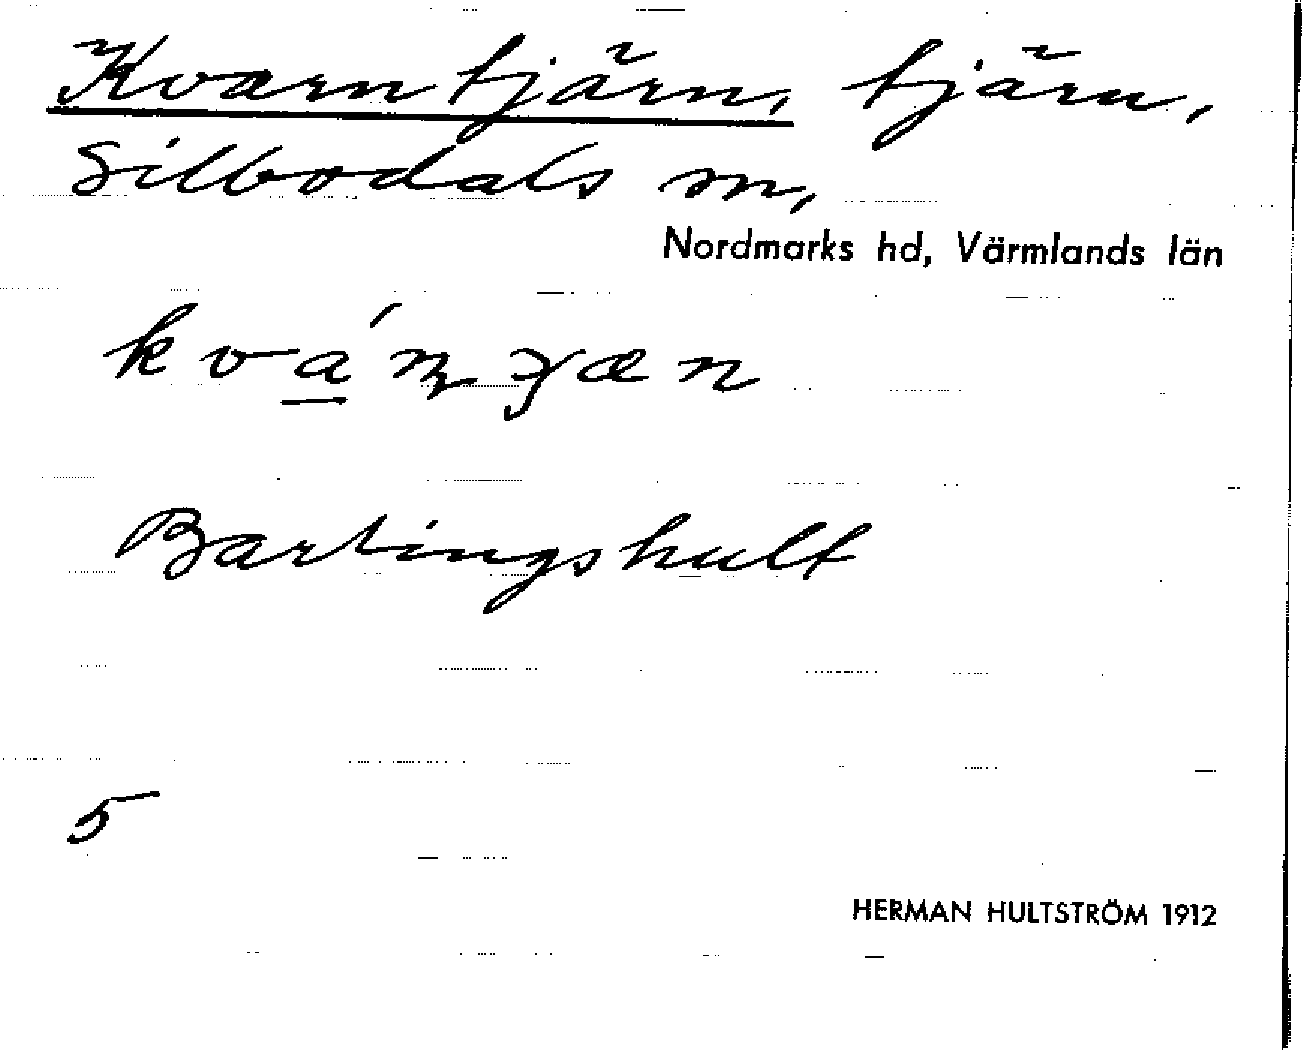 Kvarntjärn, tjärn,
Silbodals sn,
Nordmarks hd, Värmlands län
Bartingshult
5
HERMAN HULTSTRÖM 1912